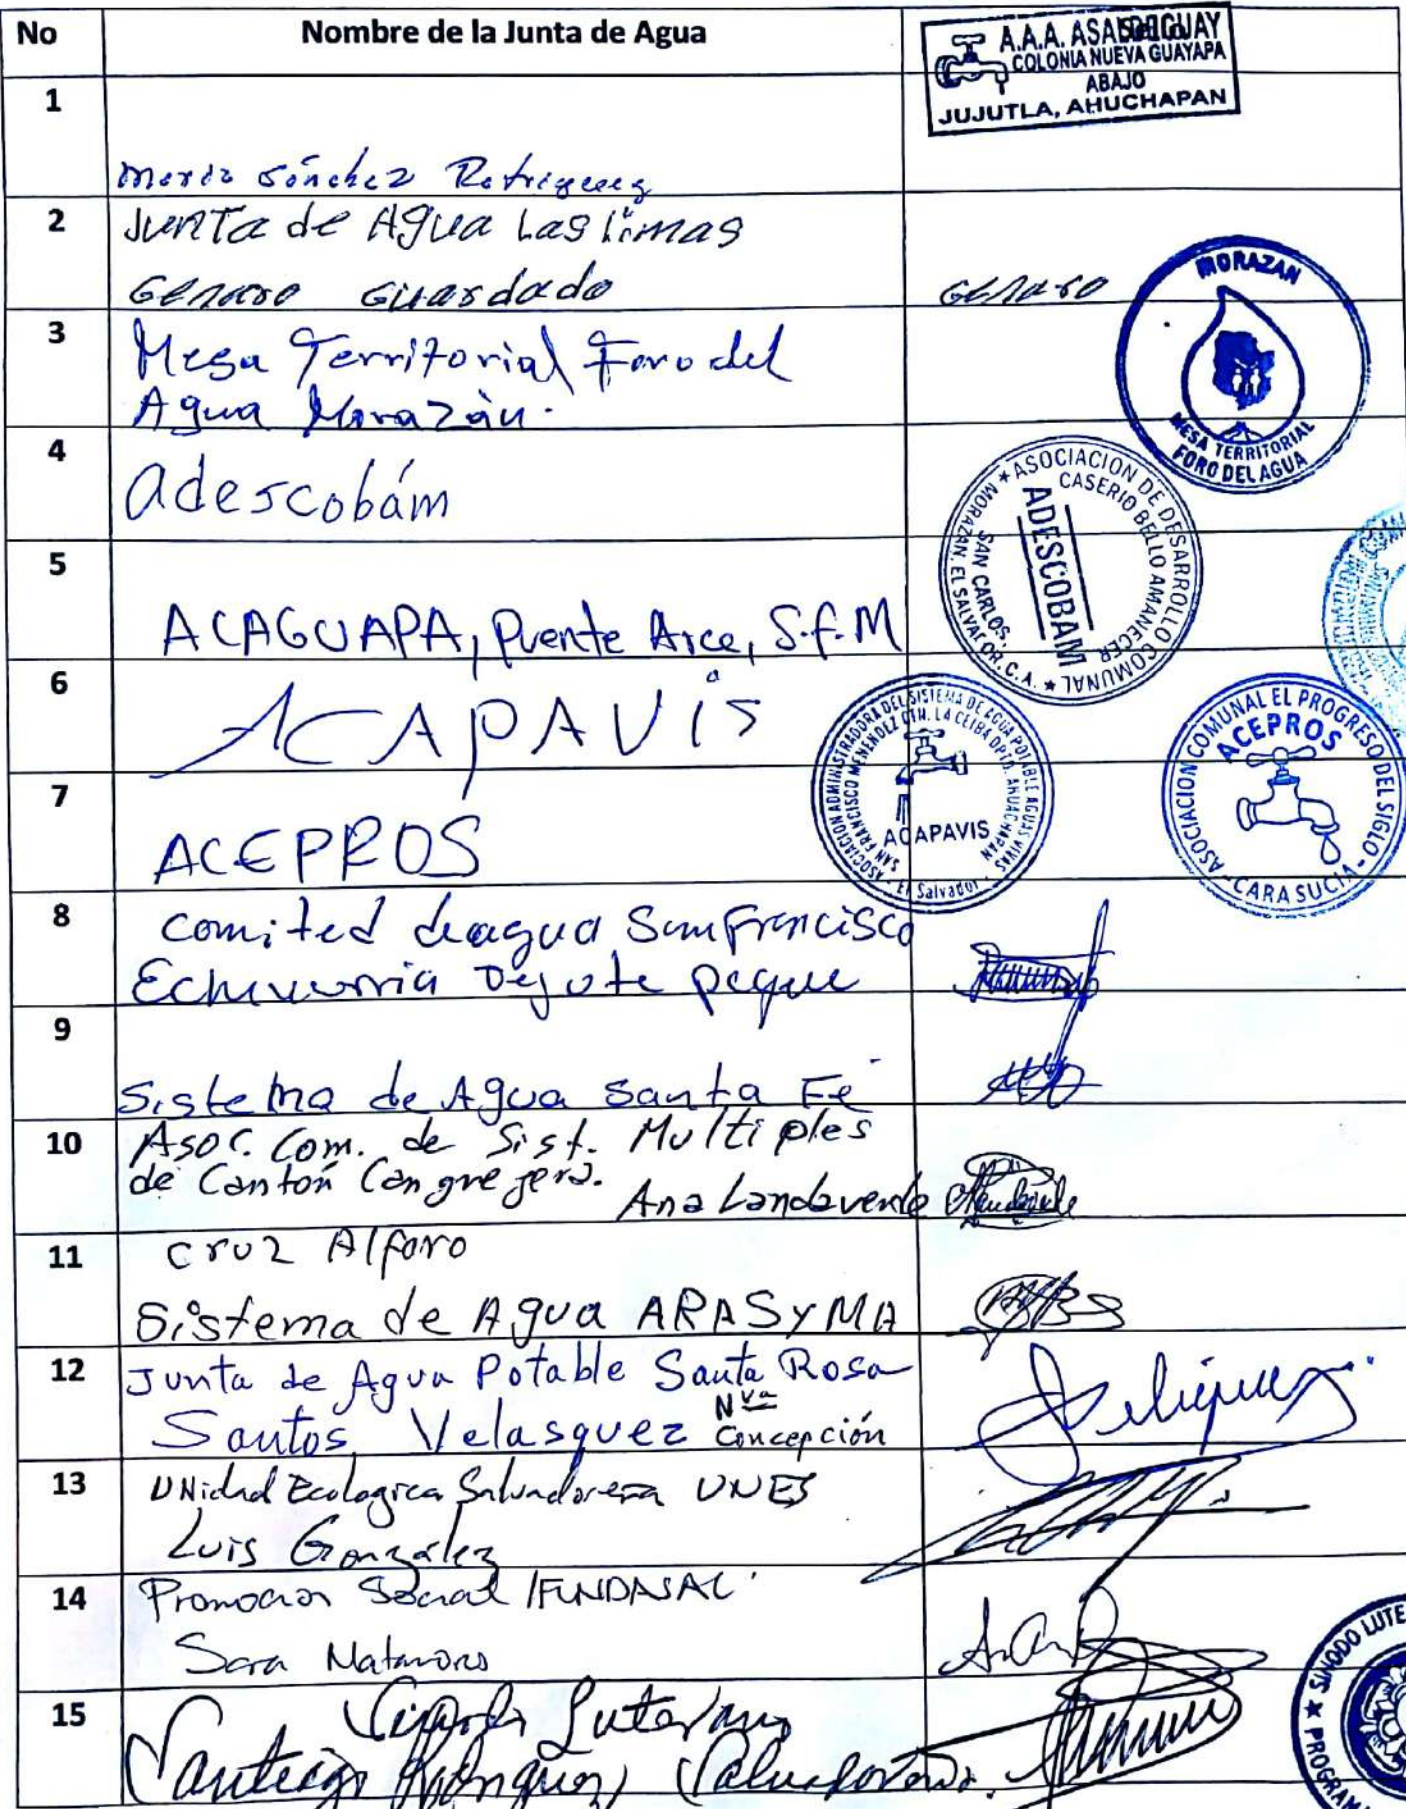 No
Nombre de la Junta de Agua
A.A.A.
COLONIA NUEVA GUAYAPA
ABAJO
JUJUTLA, AHUCHAPAN
1
María Sánchez
2
Junta de Agua Las limas
Genaro Guardado
Genaro
3
Mesa Territorial Foro del
Agua Morazán.
MORAZAN
MESA TERRITORIAL
FORO DEL AGUA
4
adescobám
ASOCIACION DE DESARROLLO COMUNAL
CASERIO BELLO AMANECER
ADESCOBAM
SAN CARLOS,
MORAZAN, EL SALVADOR, C.A.
5
ACAGUAPA, Puente Arce, S.f.M
6
ACAPAVIS
ASOCIACION ADMINISTRADORA DEL SISTEMA DE AGUA POTABLE AGUAS VIVAS
SAN FRANCISCO MENENDEZ CTN. LA CEIBA DPTO. AHUACHAPAN
ACAPAVIS
El Salvador
7
ACEPROS
ASOCIACION COMUNAL EL PROGRESO DEL SIGLO
ACEPROS
CARA SUCIA
8
comited deagua Sanfrancisco
Echeverria peque
9
Sistema de Agua Santa Fé
10
Asoc. Com. de Sist. Multiples
de Cantón Cangrejera.
Ana Landaverde
11
Cruz Alfaro
Sistema de Agua ARASYMA
12
Junta de Agua Potable Santa Rosa
Santos Velasquez Nva Concepción
13
UNidad Ecologica Salvadoreña UNES
Luis González
14
Promocion Social /FUNDASAL
Sara Matamoros
15
Sinodo Luterano
Santiago Rodriguez Salvadoreño.
SINODO LUTE
PROGRAM